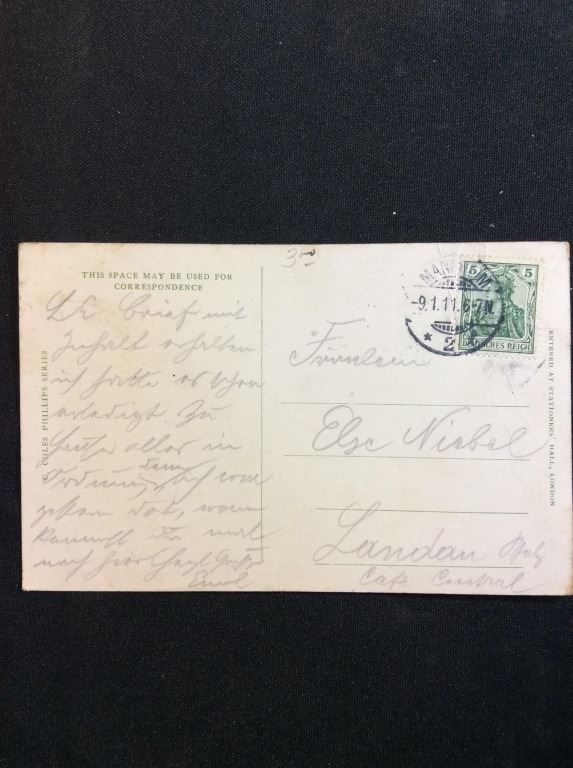 THIS SPACE MAY BE USED FOR
CORRESPONDENCE
C. COLES PHILLIPS SERIES
Brief mit
Inhalt erhalten
ich hatte es schon
erledigt Zu
Hause alles in
Ordnung, denn ich war
gestern dort, wann
kommst du mal
nach hier Grüße
Emil
3
MANNHEIM
-9.1.11.6-7N.
* 2
5 5
DEUTSCHES REICH
Fräulein
Else Niebel
Landau Pfalz
Café Central
ENTERED AT STATIONERS' HALL, LONDON